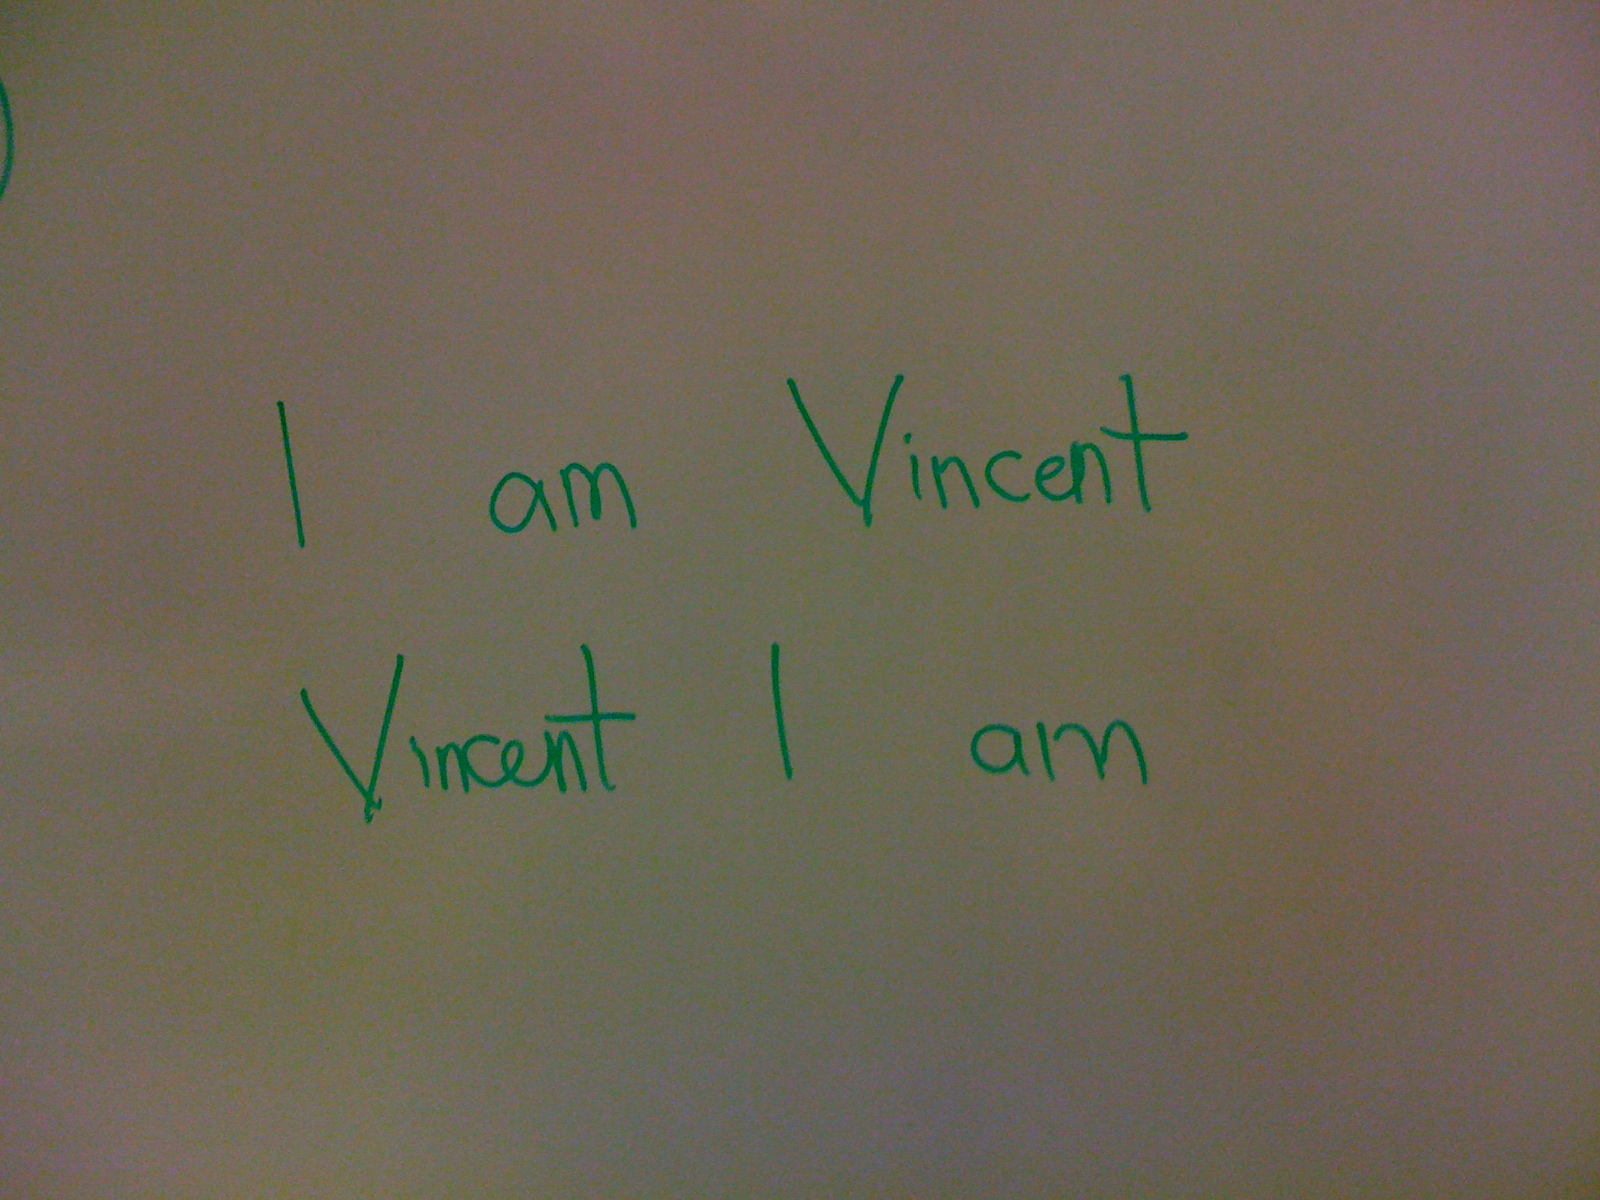 I am Vincent
Vincent I am